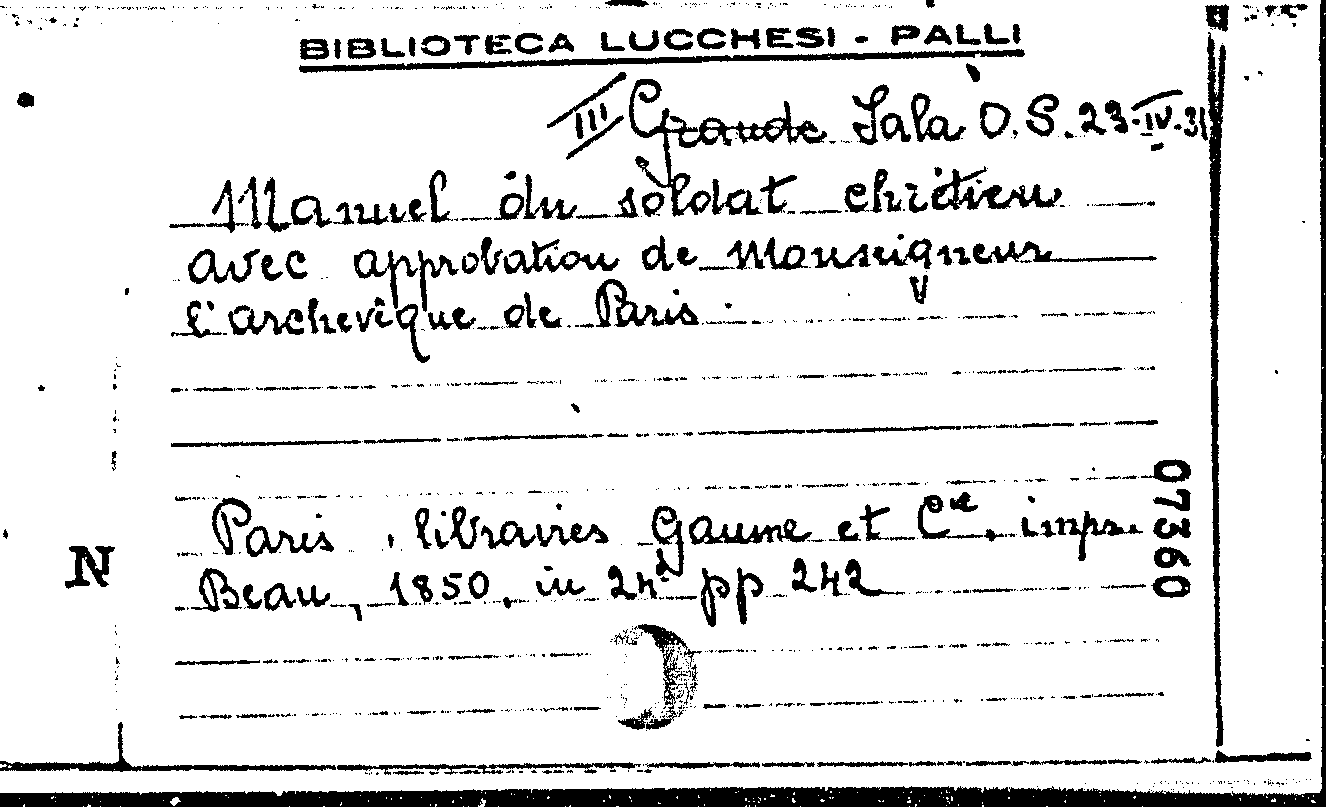 BIBLIOTECA LUCCHESI - PALLI
III Grande Sala O.S. 23-IV.31
Manuel du soldat chrétien
avec approbation de Monseigneur
l'archevêque de Paris.
Paris, libraires Gaume et Cie, impr.
Beau, 1850, in 24º pp 242
07360
N